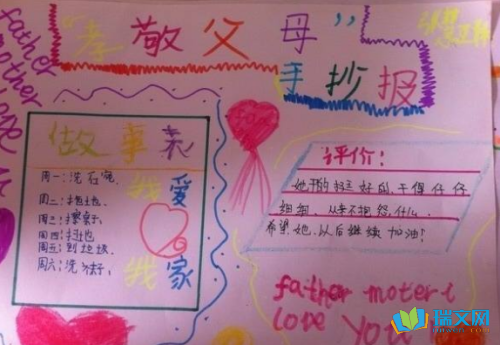 father
mother
love
"孝敬父母"
手抄报
做事表
周一:洗石
周二:拖地
周三:擦桌子
周四:扫地
周五:到垃圾
周六:洗袜子
我爱
我家
评价:
她干的很好的,干得仔仔
细细、从来不抱怨什么
希望她,以后继续加油!
father moter I
love you
瑞文网